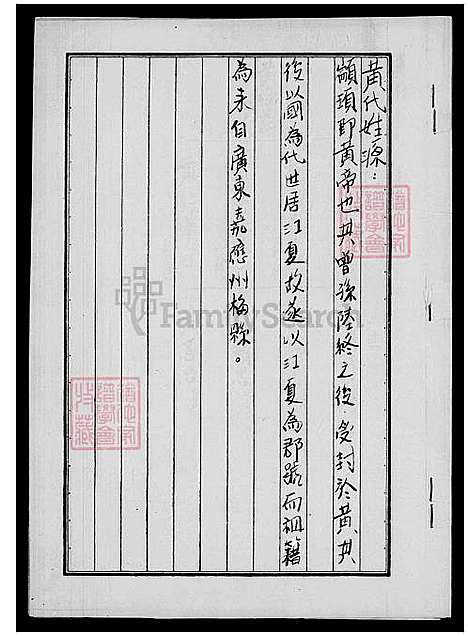 黃代姓源：
顓頊即黃帝也其曾孫陸終之後．受封於黃其
後以國為代世居江夏故遂以江夏為郡號而祖籍
為來自廣東嘉應州梅縣。
FamilySearch